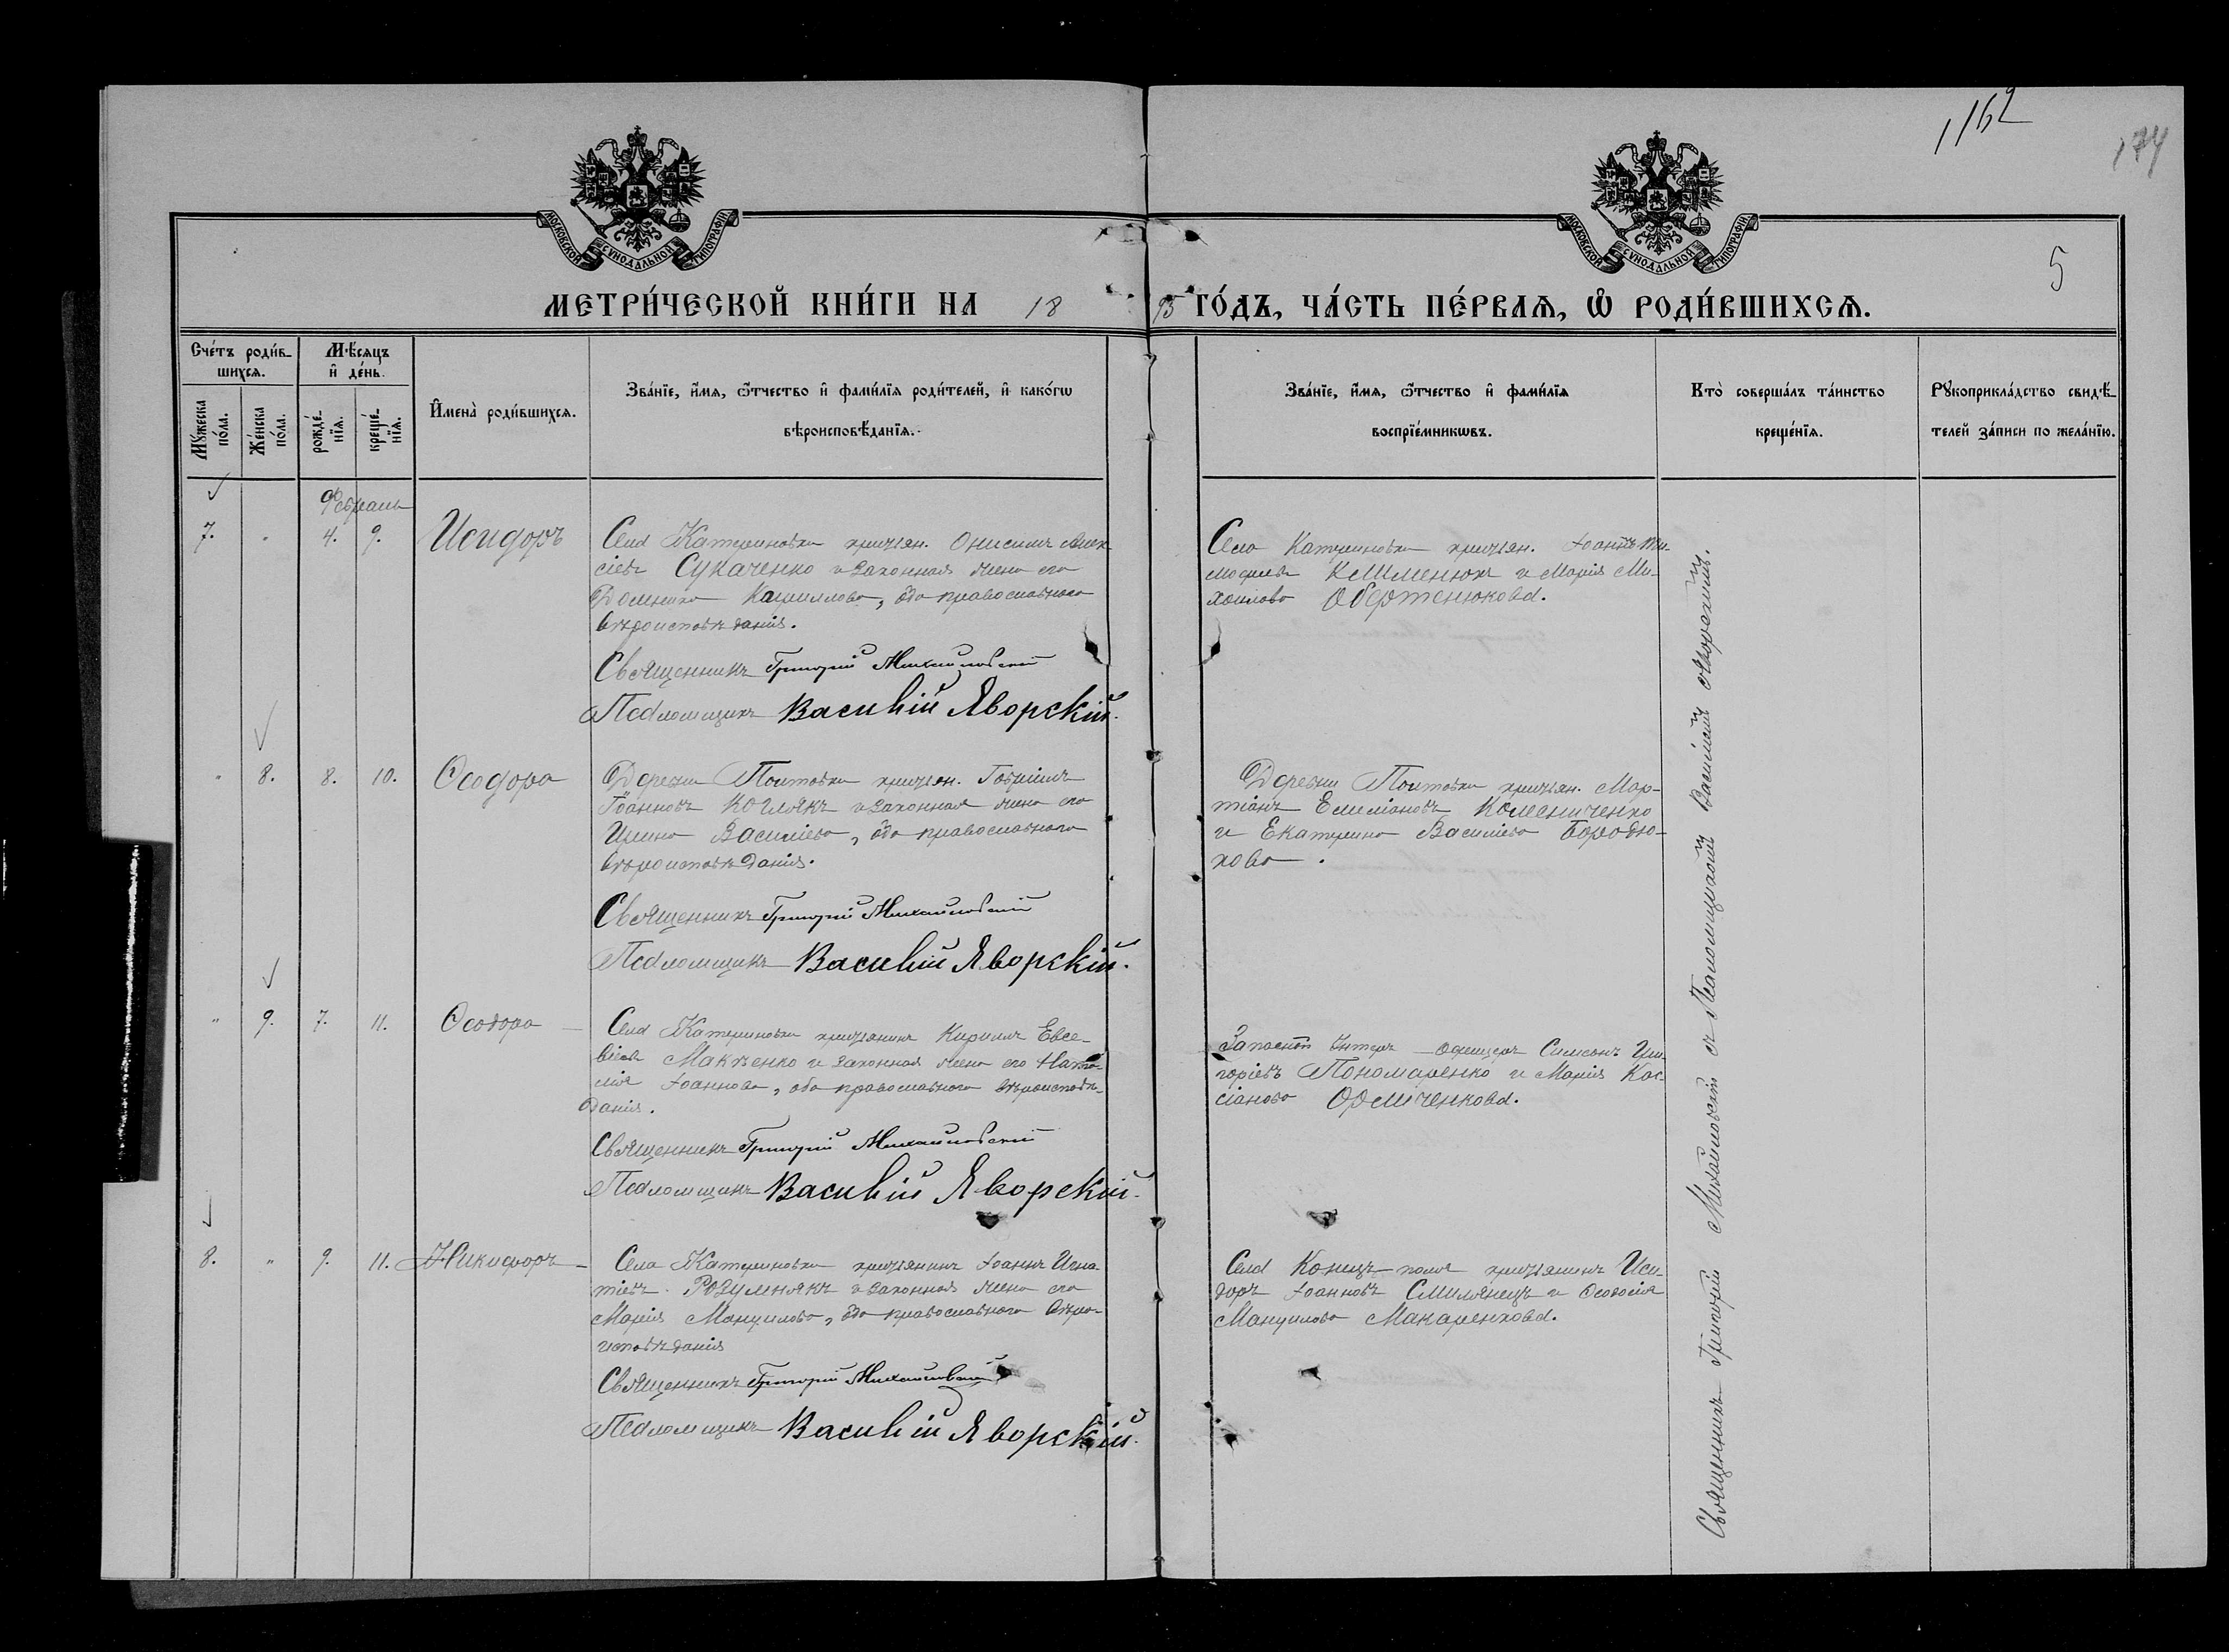 1162
174
5
МОСКОВСКОЙ СѴНОДАЛЬНОЙ ТИПОГРАФІИ
МОСКОВСКОЙ СѴНОДАЛЬНОЙ ТИПОГРАФІИ
МЕТРИ́ЧЕСКОЙ КНИ́ГИ НА 18 95 ГО́ДЪ, ЧА́СТЬ ПЕ́РВАѦ, Ѡ҆ РОДИ́ВШИХСѦ.
Сче́тъ роди́в-
шихсѧ.
Мꙋ́жеска по́ла.
Же́нска по́ла.
Мѣ́сѧцъ
и҆ де́нь.
рожде́-
нїѧ.
креще́-
нїѧ.
И҆мена̀ роди́вшихсѧ.
Зва́нїе, и҆́мѧ, ѻ҆́тчество и҆ фами́лїѧ роди́телей, и҆ како́гѡ
вѣроисповѣ́данїѧ.
Зва́нїе, и҆́мѧ, ѻ҆́тчество и҆ фами́лїѧ
воспрїе́мникѡвъ.
Кто̀ соверша́лъ та́инство
креще́нїѧ.
Рꙋкоприкла́дство свидѣ́-
телей за́писи по жела́нїю.
Февраль
7. " 4. 9. Исидоръ
Села Катериновки крестьян. Онисимъ Алек-
сіевъ Сукаченко и законная жена его
Домника Кириллова, оба православнаго
вѣроисповѣданія.
Священникъ Григорій Михайловскій
Псаломщикъ Василій Яворскій.
Села Катериновки крестьян. Іоаннъ Ти-
мофеевъ Клименюкъ и Марія Ми-
хаилова Обертенюкова.
" 8. 8. 10. Ѳеодора
Деревни Полтовки крестьян. Гавріилъ
Іоанновъ Коглякъ и законная жена его
Ирина Василіева, оба православнаго
вѣроисповѣданія.
Священникъ Григорій Михайловскій
Псаломщикъ Василій Яворскій.
Деревни Полтовки крестьян. Мар-
тіанъ Емиліановъ Колесниченко
и Екатерина Василіева Бородю-
кова.
" 9. 7. 11. Ѳеодора
Села Катериновки крестьянинъ Кириллъ Евсе-
віевъ Макѣенко и законная жена его Ната-
лія Іоаннова, оба православнаго вѣроисповѣ-
данія.
Священникъ Григорій Михайловскій
Псаломщикъ Василій Яворскій.
Запасной Унтеръ-офицеръ Симеонъ Гри-
горіевъ Пономаренко и Марія Кас-
сіанова
8. " 9. 11. Никифоръ
Села Катериновки крестьянинъ Іоаннъ Игна-
тіевъ Розумнякъ и законная жена его
Марія Мануилова, оба православнаго вѣро-
исповѣданія
Священникъ Григорій Михайловскій
Псаломщикъ Василій Яворскій.
Села Конецъ-поля крестьянинъ Иси-
доръ Іоанновъ Смилянецъ и Ѳеодосія
Мануилова Макаренкова.
Священникъ Григорій Михайловскій съ Псаломщикомъ Василіемъ Яворскимъ.